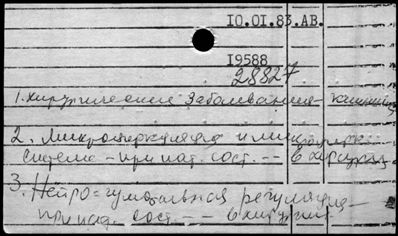 IO.OI.83.АВ.
I9588
28827
1. хирургические заболевания-
2. Микроциркуляция и
система - при пат. сост. --- в хирургии
3. Нейро-гуморальная регуляция
при пат. сост. -- в хирургии